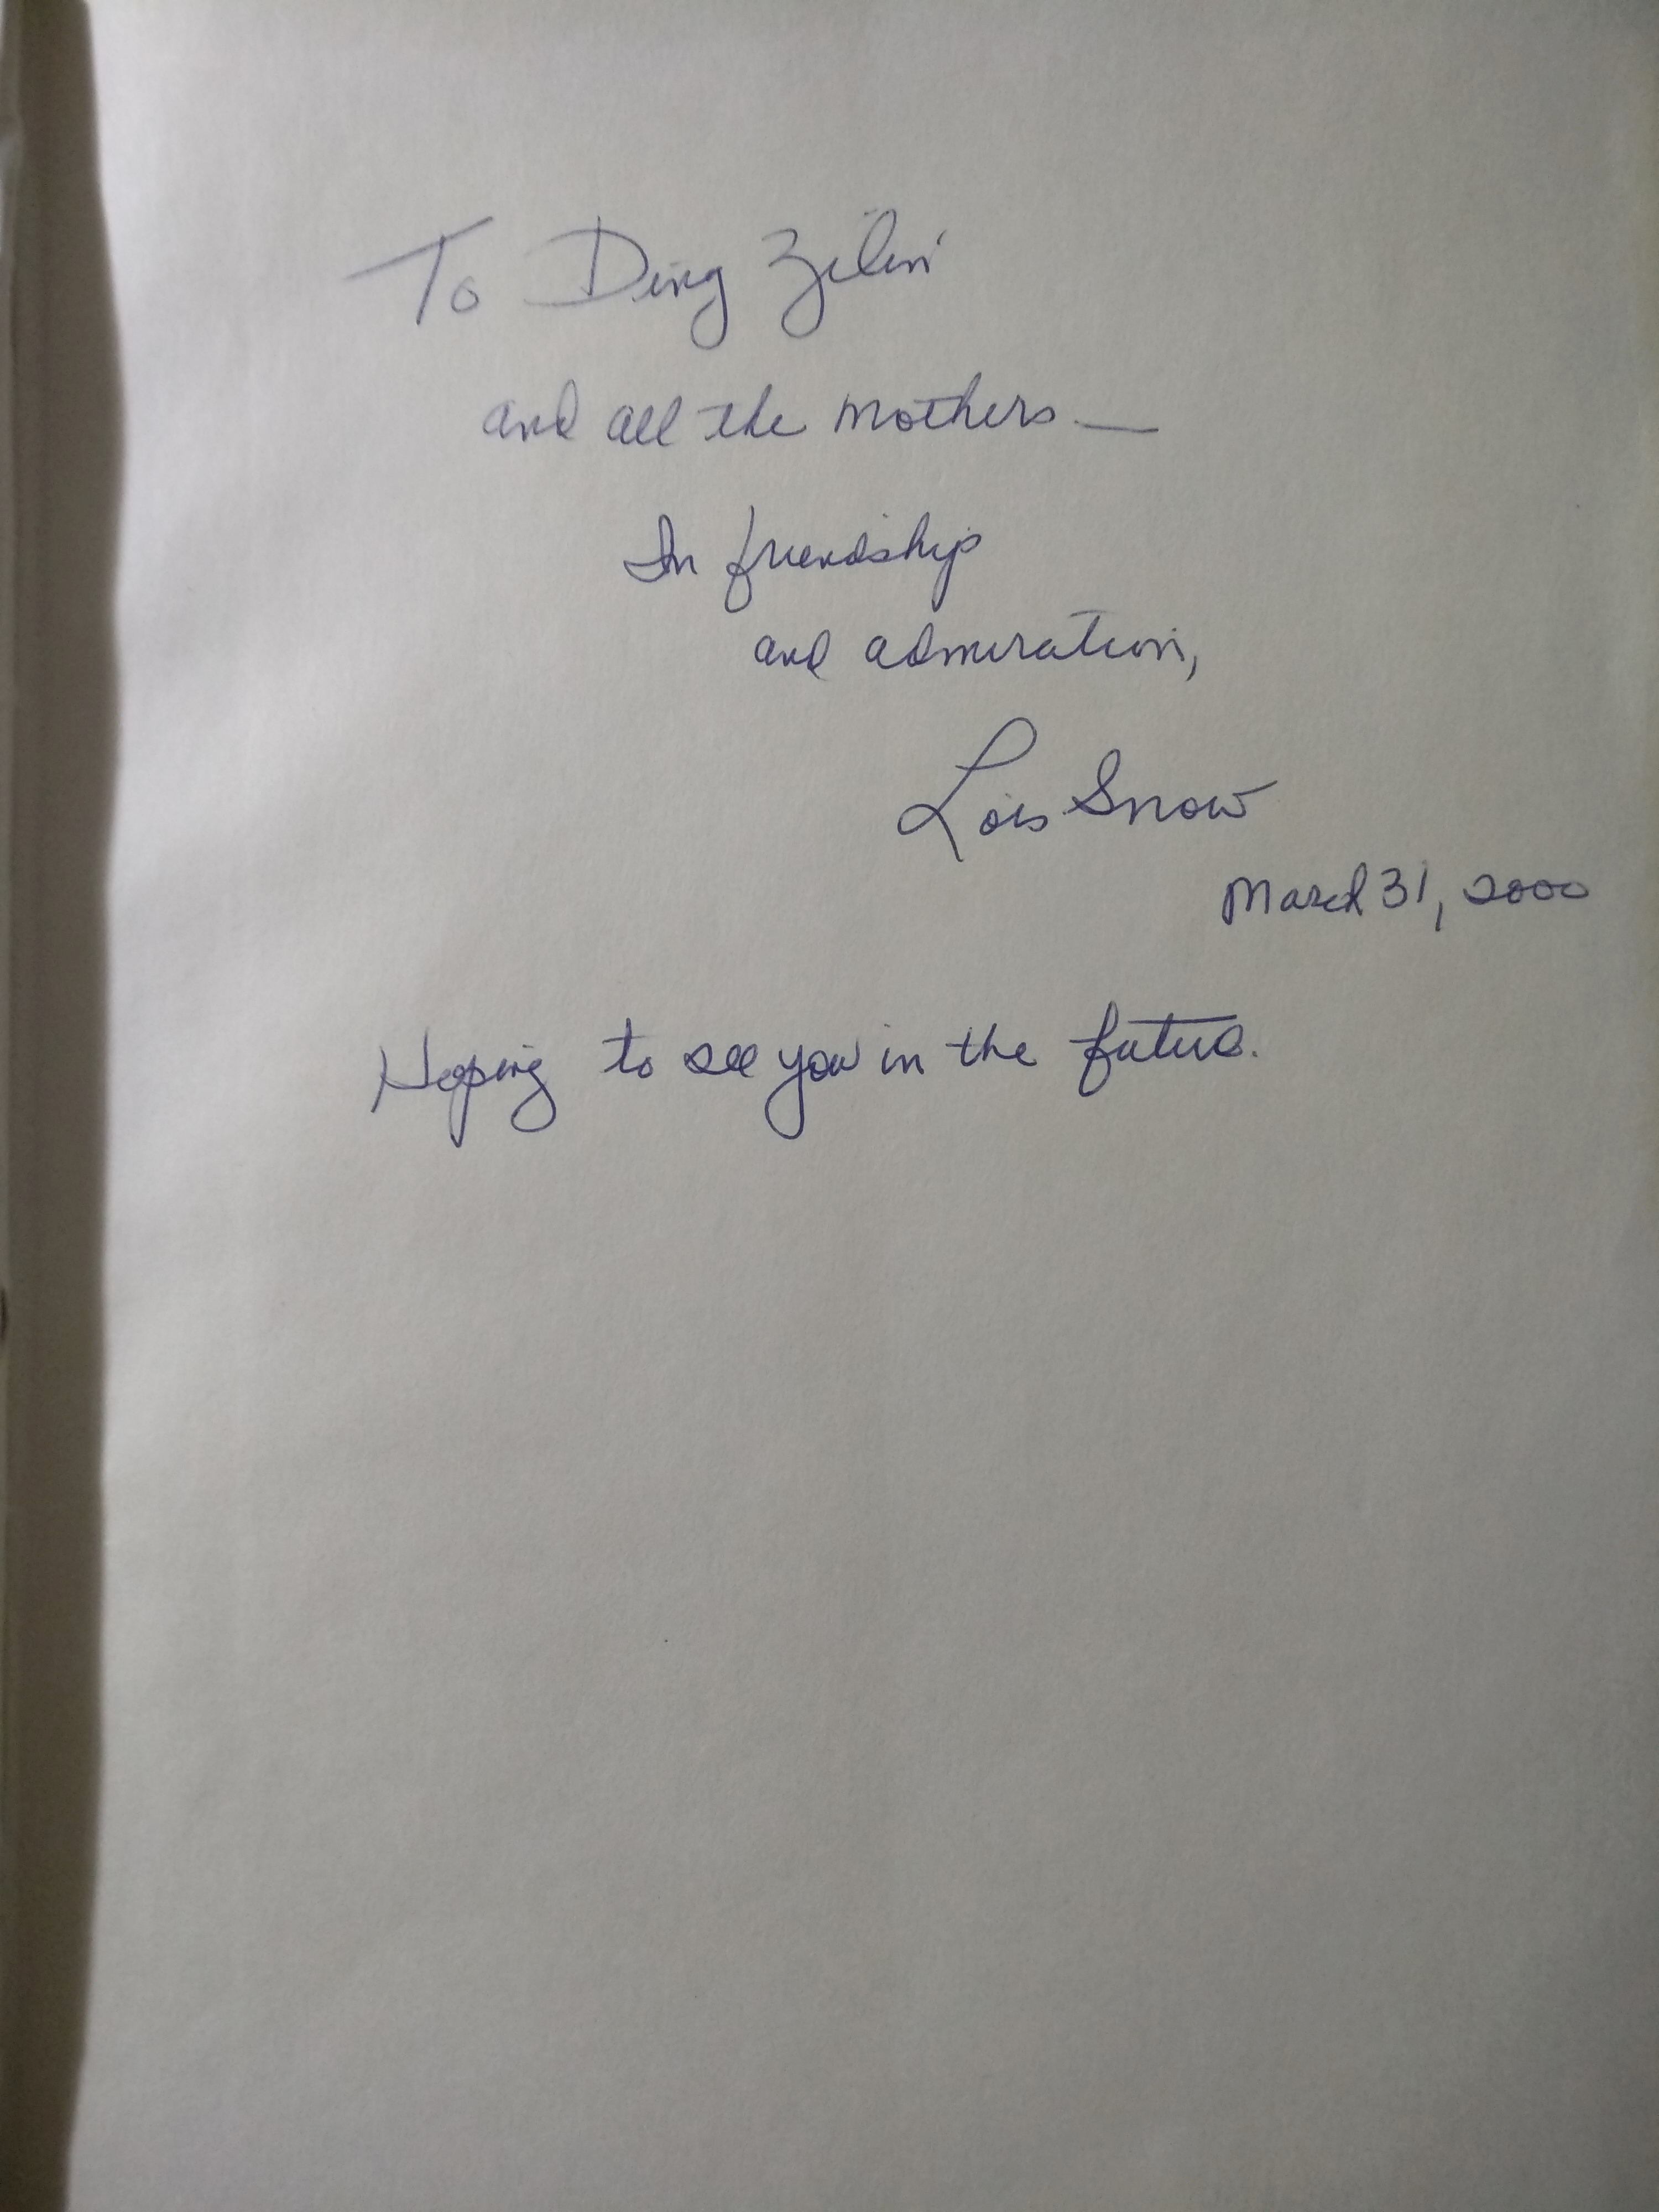 To Ding Zilin
and all the mothers —
In friendship
and admiration,
Lois Snow
March 31, 2000
Hoping to see you in the future.